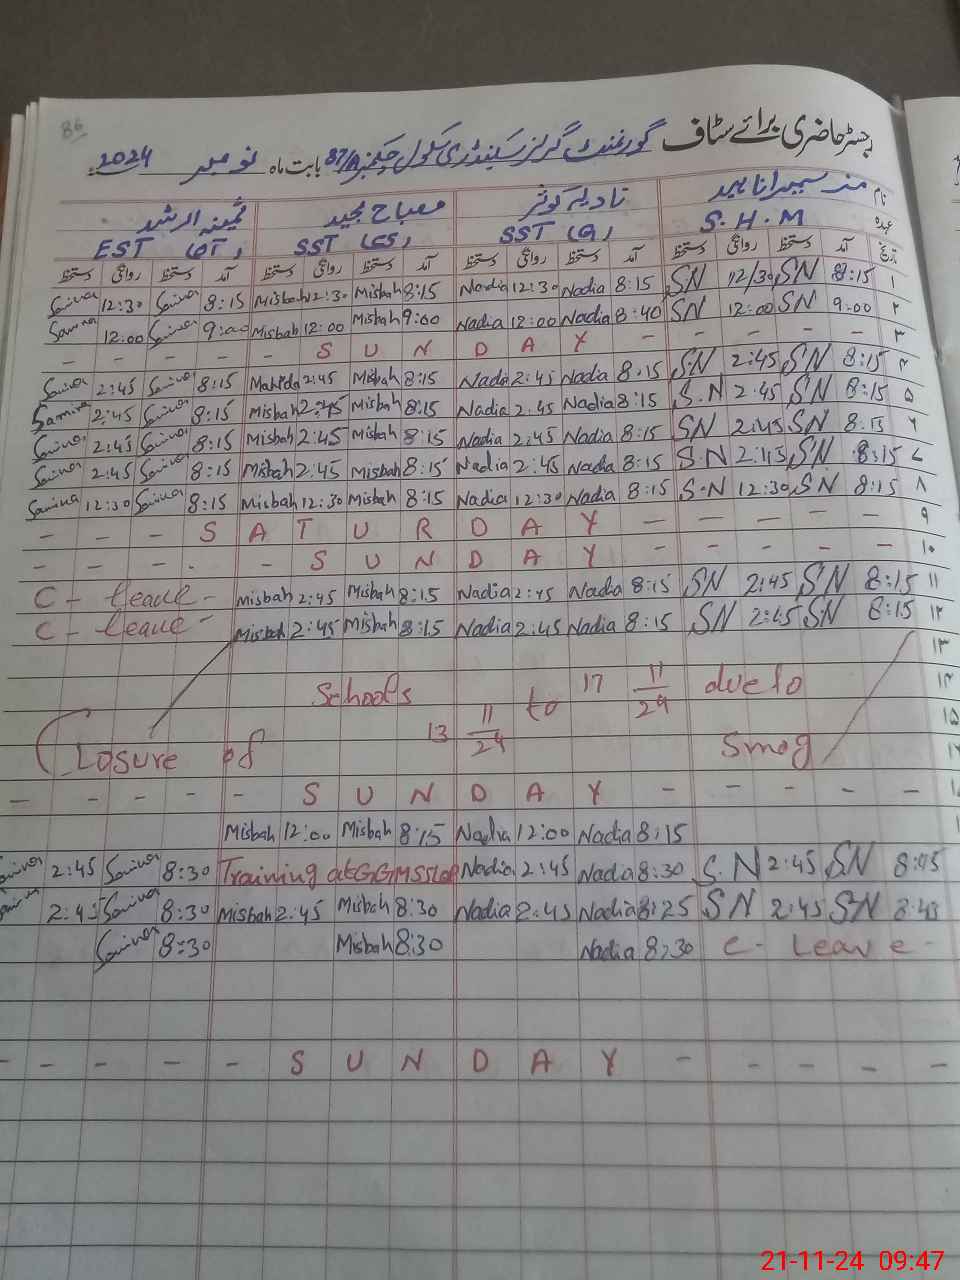 86
رجسٹر حاضری برائے سٹاف گورنمنٹ گرلز سیکنڈری سکول چکنمبر 87/A بابت ماہ نومبر 2024ء
نام مسز سمیرا ناہید نادیہ کوثر مصباح مجید ثمینہ الرشد
عہدہ S.H.M SST SST EST
تاریخ آمد دستخط روانگی دستخط آمد دستخط روانگی دستخط آمد دستخط روانگی دستخط آمد دستخط روانگی دستخط
12:30 8:15 Misbah 12:30 Misbah 8:15 Nadia 12:30 Nadia 8:15 SN 12/30 SN 8:15 ۱
12:00 9:00 Misbah 12:00 Misbah 9:00 Nadia 12:00 Nadia 8:40 SN 12:00 SN 9:00 ۲
- - - - - S U N D A Y - - - - - ۳
2:45 8:15 2:45 Misbah 8:15 Nadia 2:45 Nadia 8:15 SN 2:45 SN 8:15 ۴
2:45 8:15 Misbah 2:45 Misbah 8:15 Nadia 2:45 Nadia 8:15 S.N 2:45 SN 8:15 ۵
2:45 8:15 Misbah 2:45 Misbah 8:15 Nadia 2:45 Nadia 8:15 SN 2:45 SN 8:15 ۶
2:45 8:15 Misbah 2:45 Misbah 8:15 Nadia 2:45 Nadia 8:15 S.N 2:45 SN 8:15 ۷
12:30 8:15 Misbah 12:30 Misbah 8:15 Nadia 12:30 Nadia 8:15 S.N 12:30 SN 8:15 ۸
- - - S A T U R D A Y - - - - - ۹
- - - - S U N D A Y - - - - - ۱۰
C - leave - Misbah 2:45 Misbah 8:15 Nadia 2:45 Nadia 8:15 SN 2:45 SN 8:15 ۱۱
C - leave - Misbah 2:45 Misbah 8:15 Nadia 2:45 Nadia 8:15 SN 2:45 SN 8:15 ۱۲
۱۳
Closure of Schools 13 11/24 to 17 11/24 due to Smog
۱۴
۱۵
- - - - - S U N D A Y - - - - -
Misbah 12:00 Misbah 8:15 Nadia 12:00 Nadia 8:15
2:45 8:30 Training at Nadia 2:45 Nadia 8:30 S.N 2:45 SN
2:45 8:30 Misbah 2:45 Misbah 8:30 Nadia 2:45 Nadia 8:25 SN 2:45 SN 8:45
8:30 Misbah 8:30 Nadia 8:30 C - Leave -
- - - - - S U N D A Y - - - - -
21-11-24 09:47